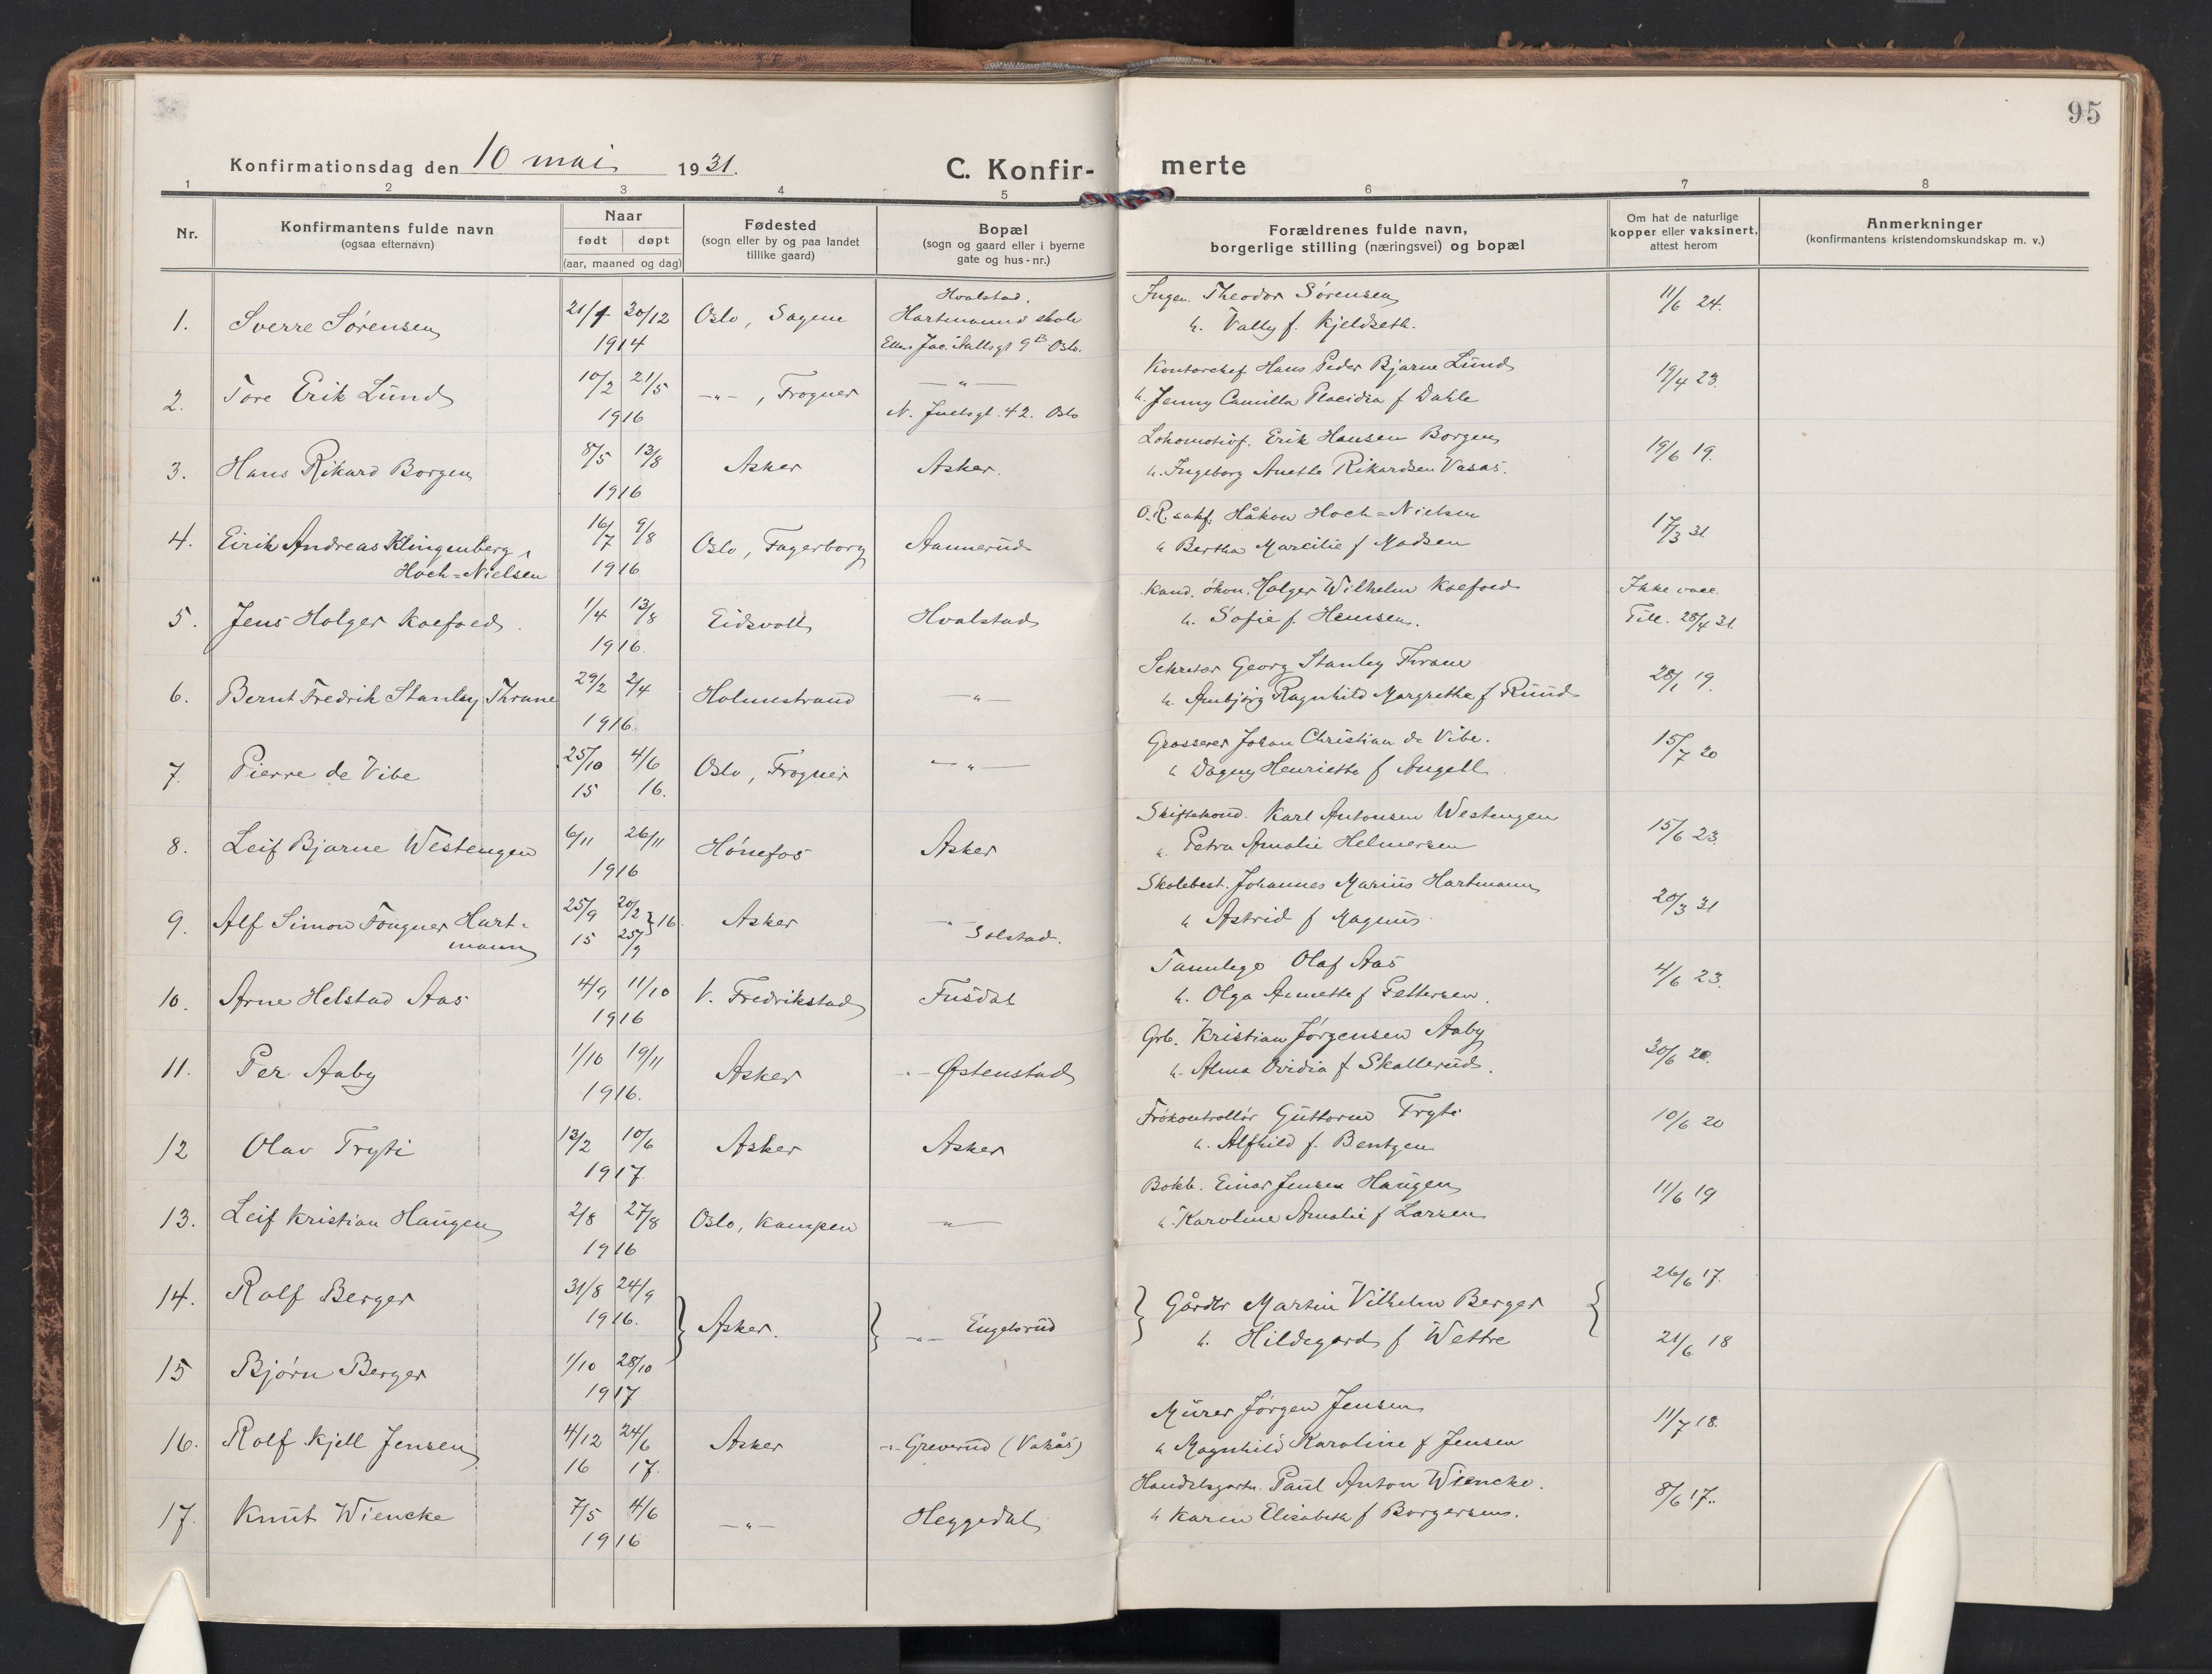 95
Konfirmationsdag den 10 mai 1931.
C. Konfir- merte
1 2 3 4 5 6 7 8
Nr.
Konfirmantens fulde navn
(ogsaa efternavn)
Naar
født døpt
(aar, maaned og dag)
Fødested
(sogn eller by og paa landet
tillike gaard)
Bopæl
(sogn og gaard eller i byerne
gate og hus-nr.)
Forældrenes fulde navn,
borgerlige stilling (næringsvei) og bopæl
Om hat de naturlige
kopper eller vaksinert,
attest herom
Anmerkninger
(konfirmantens kristendomskundskap m. v.)
Hvalstad.
1. Sverre Sørensen 21/7 20/12 Oslo, Sagene Hartmanns skole Ingen. Theodor Sørensen 11/6 24.
1914 Jac. Aallsgt 9B Oslo. h. Vally f. Kjeldseth.
2. Tore Erik Lund 10/2 21/5 -"-, Frogner -"- Kontorchef Hans Peder Bjarne Lund 19/4 23.
1916 N. Juelsgt. 42. Oslo h. Jenny Camilla Placidia f Dahle
3. Hans Rikard Borgen 8/5 13/8 Asker Asker. Lokomotivf. Erik Hansen Borgen 19/6 19.
1916 h. Ingeborg Anette Rikardsen Vasås.
4. Eirik Andreas Klingenberg 16/7 9/8 Oslo, Fagerborg Aannerud O.R. sakf. Håkon Hoch=Nielsen 17/3 31
Hoch=Nielsen 1916 h Bertha Marcilie f Madsen
5. Jens Holger Koefoed. 1/4 13/8 Eidsvoll Hvalstad Kand. økon. Holger Wilhelm Koefoed Ikke vacc.
1916. h. Sofie f. Hemsen. Till. 28/4 31.
6. Bernt Fredrik Stanley Thrane 29/2 2/4 Holmestrand -"- Sekretær Georg Stanley Thrane 28/1 19.
1916. h. Ambjørg Ragnhild Margrethe f Ruud
7. Pierre de Vibe 25/10 4/6 Oslo, Frogner -"- Grosserer Johan Christian de Vibe. 15/7 20
15 16. h Dagny Henriette f Angell
8. Leif Bjarne Westengen 6/11 26/11 Hønefos Asker Skiftekond. Karl Antonsen Westengen 15/6 23.
1916 h. Petra Amalie Helmersen
9. Alf Simon Fougner Hart- 25/9 20/2 } 16. Asker -"- Solstad. Skolebest. Johannes Marius Hartmann 20/3 31
mann 15 25/9 h Astrid f Magnus
10. Arne Helstad Aas 4/9 11/10 V. Fredrikstad Fusdal Tannlege Olaf Aas 4/6 23.
1916 h. Olga Annette f Pettersen.
11. Per Aaby 1/10 19/11 Asker -"- Østenstad Grb. Kristian Jørgensen Aaby 30/6 20.
1916. h. Alma Ovidia f Skallerud.
12 Olav Tryti 13/2 10/6 Asker Asker Frøkontrollør Guttorm Tryti 10/6 20
1917. h. Alfhild f. Bentzen
13. Leif Kristian Haugen 2/8 27/8 Oslo, Kampen -"- Bokb. Einar Jensen Haugen 11/6 19
1916 h. Karoline Amalie f Larsen
14. Rolf Berger 31/8 24/9 26/6 17.
1916. } Asker. } -"- Engelsrud } Gårdbr Martin Vilhelm Berger {
h. Hildegard f Wettre
15 Bjørn Berger 1/10 28/10 21/6 18
1917
16. Rolf Kjell Jensen 4/12 24/6 Asker -"- Greverud (Vakås) Murer Jørgen Jensen 11/7 18.
16 17. h Magnhild Karoline f Jensen
17. Knut Wiencke 7/5 4/6 -"- Heggedal Handelsgartn. Paul Anton Wiencke. 8/6 17.
1916 h Karen Elisabeth f Borgersen.